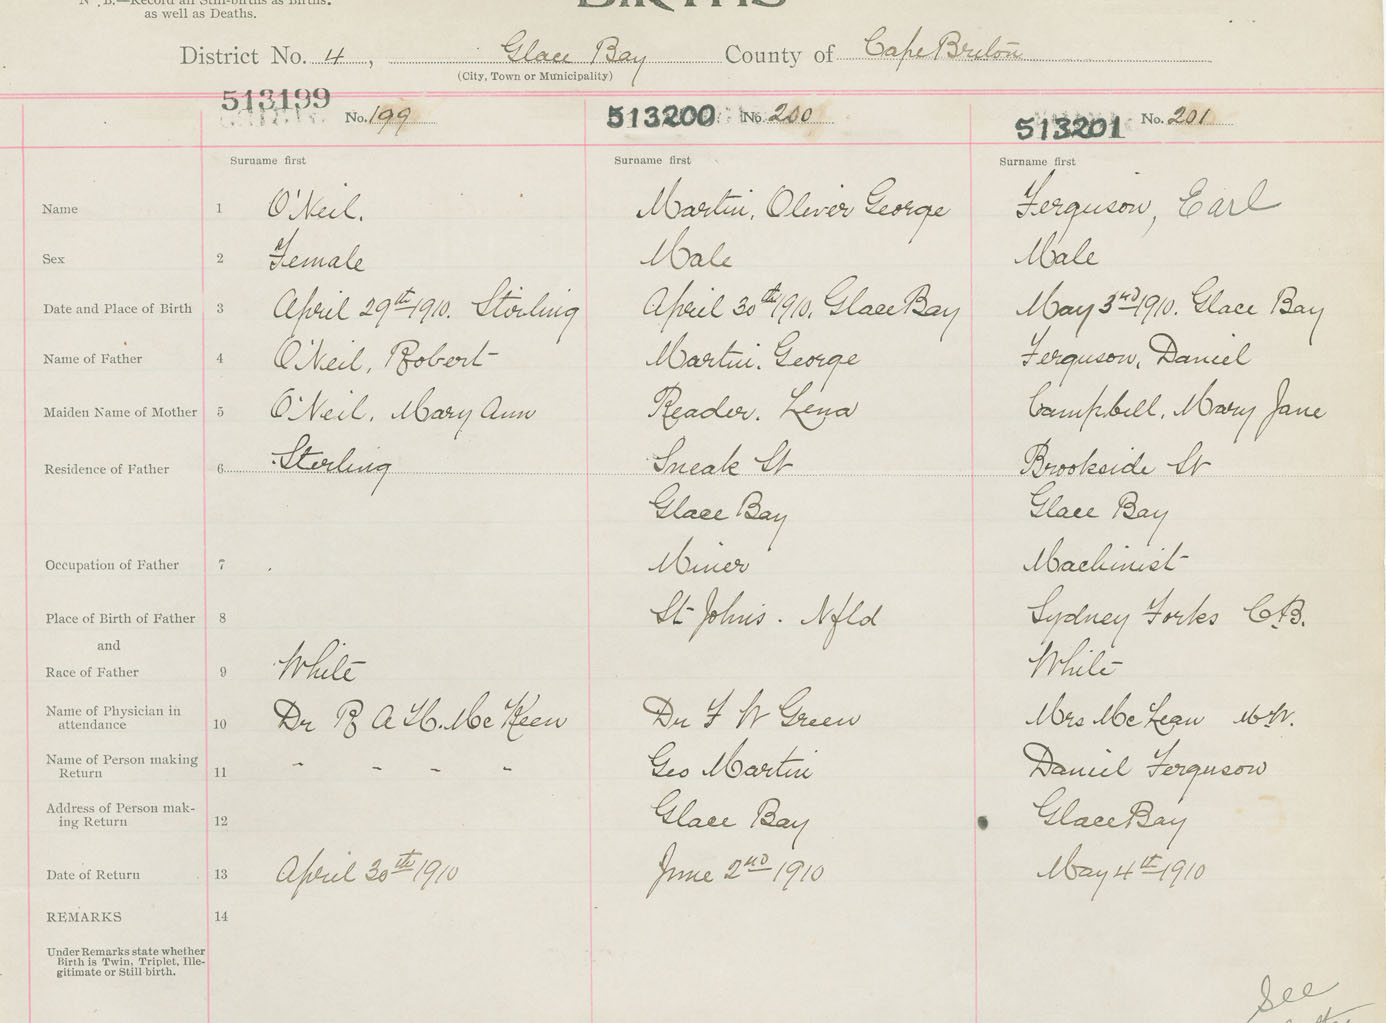 N. B.—Record all Still-births as Births.
as well as Deaths.
BIRTHS
District No. 4, Glace Bay County of Cape Breton
(City, Town or Municipality)
513199 No. 199 513200 No. 200 513201 No. 201
Surname first Surname first Surname first
Name 1 O'Neil. Martin, Oliver George Ferguson, Earl
Sex 2 Female Male Male
Date and Place of Birth 3 April 29th 1910. Stirling April 30th 1910. Glace Bay May 3rd 1910. Glace Bay
Name of Father 4 O'Neil, Robert Martin. George Ferguson, Daniel
Maiden Name of Mother 5 O'Neil, Mary Ann Reader. Lena Campbell, Mary Jane
Residence of Father 6 Sterling Sneak St Brookside St
Glace Bay Glace Bay
Occupation of Father 7 Miner Machinist
Place of Birth of Father 8 St Johns. Nfld Sydney Forks C.B.
and
Race of Father 9 White White
Name of Physician in
attendance 10 Dr R A H. McKeen Dr F W Green Mrs McLean M.W.
Name of Person making
Return 11 - - - - Geo Martin Daniel Ferguson
Address of Person mak-
ing Return 12 Glace Bay Glace Bay
Date of Return 13 April 30th 1910 June 2nd 1910 May 4th 1910
REMARKS 14
Under Remarks state whether
Birth is Twin, Triplet, Ille-
gitimate or Still birth.
See